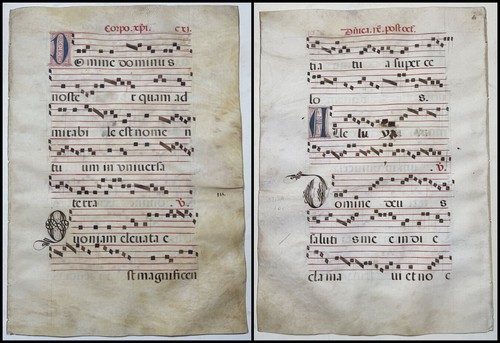 Corpo. xpi. cxj.
Domine dominus
noste r quam ad
mirabi le est nome n
tu um in vniversa
te rra ℣.
Quoniam elevata e
st magnificen
Dñica. jẽ. post oct.
tia tu a super ce
lo s.
Alle lu ya
℣.
Domine deu s
saluti s me e in di e
clama ui et no c